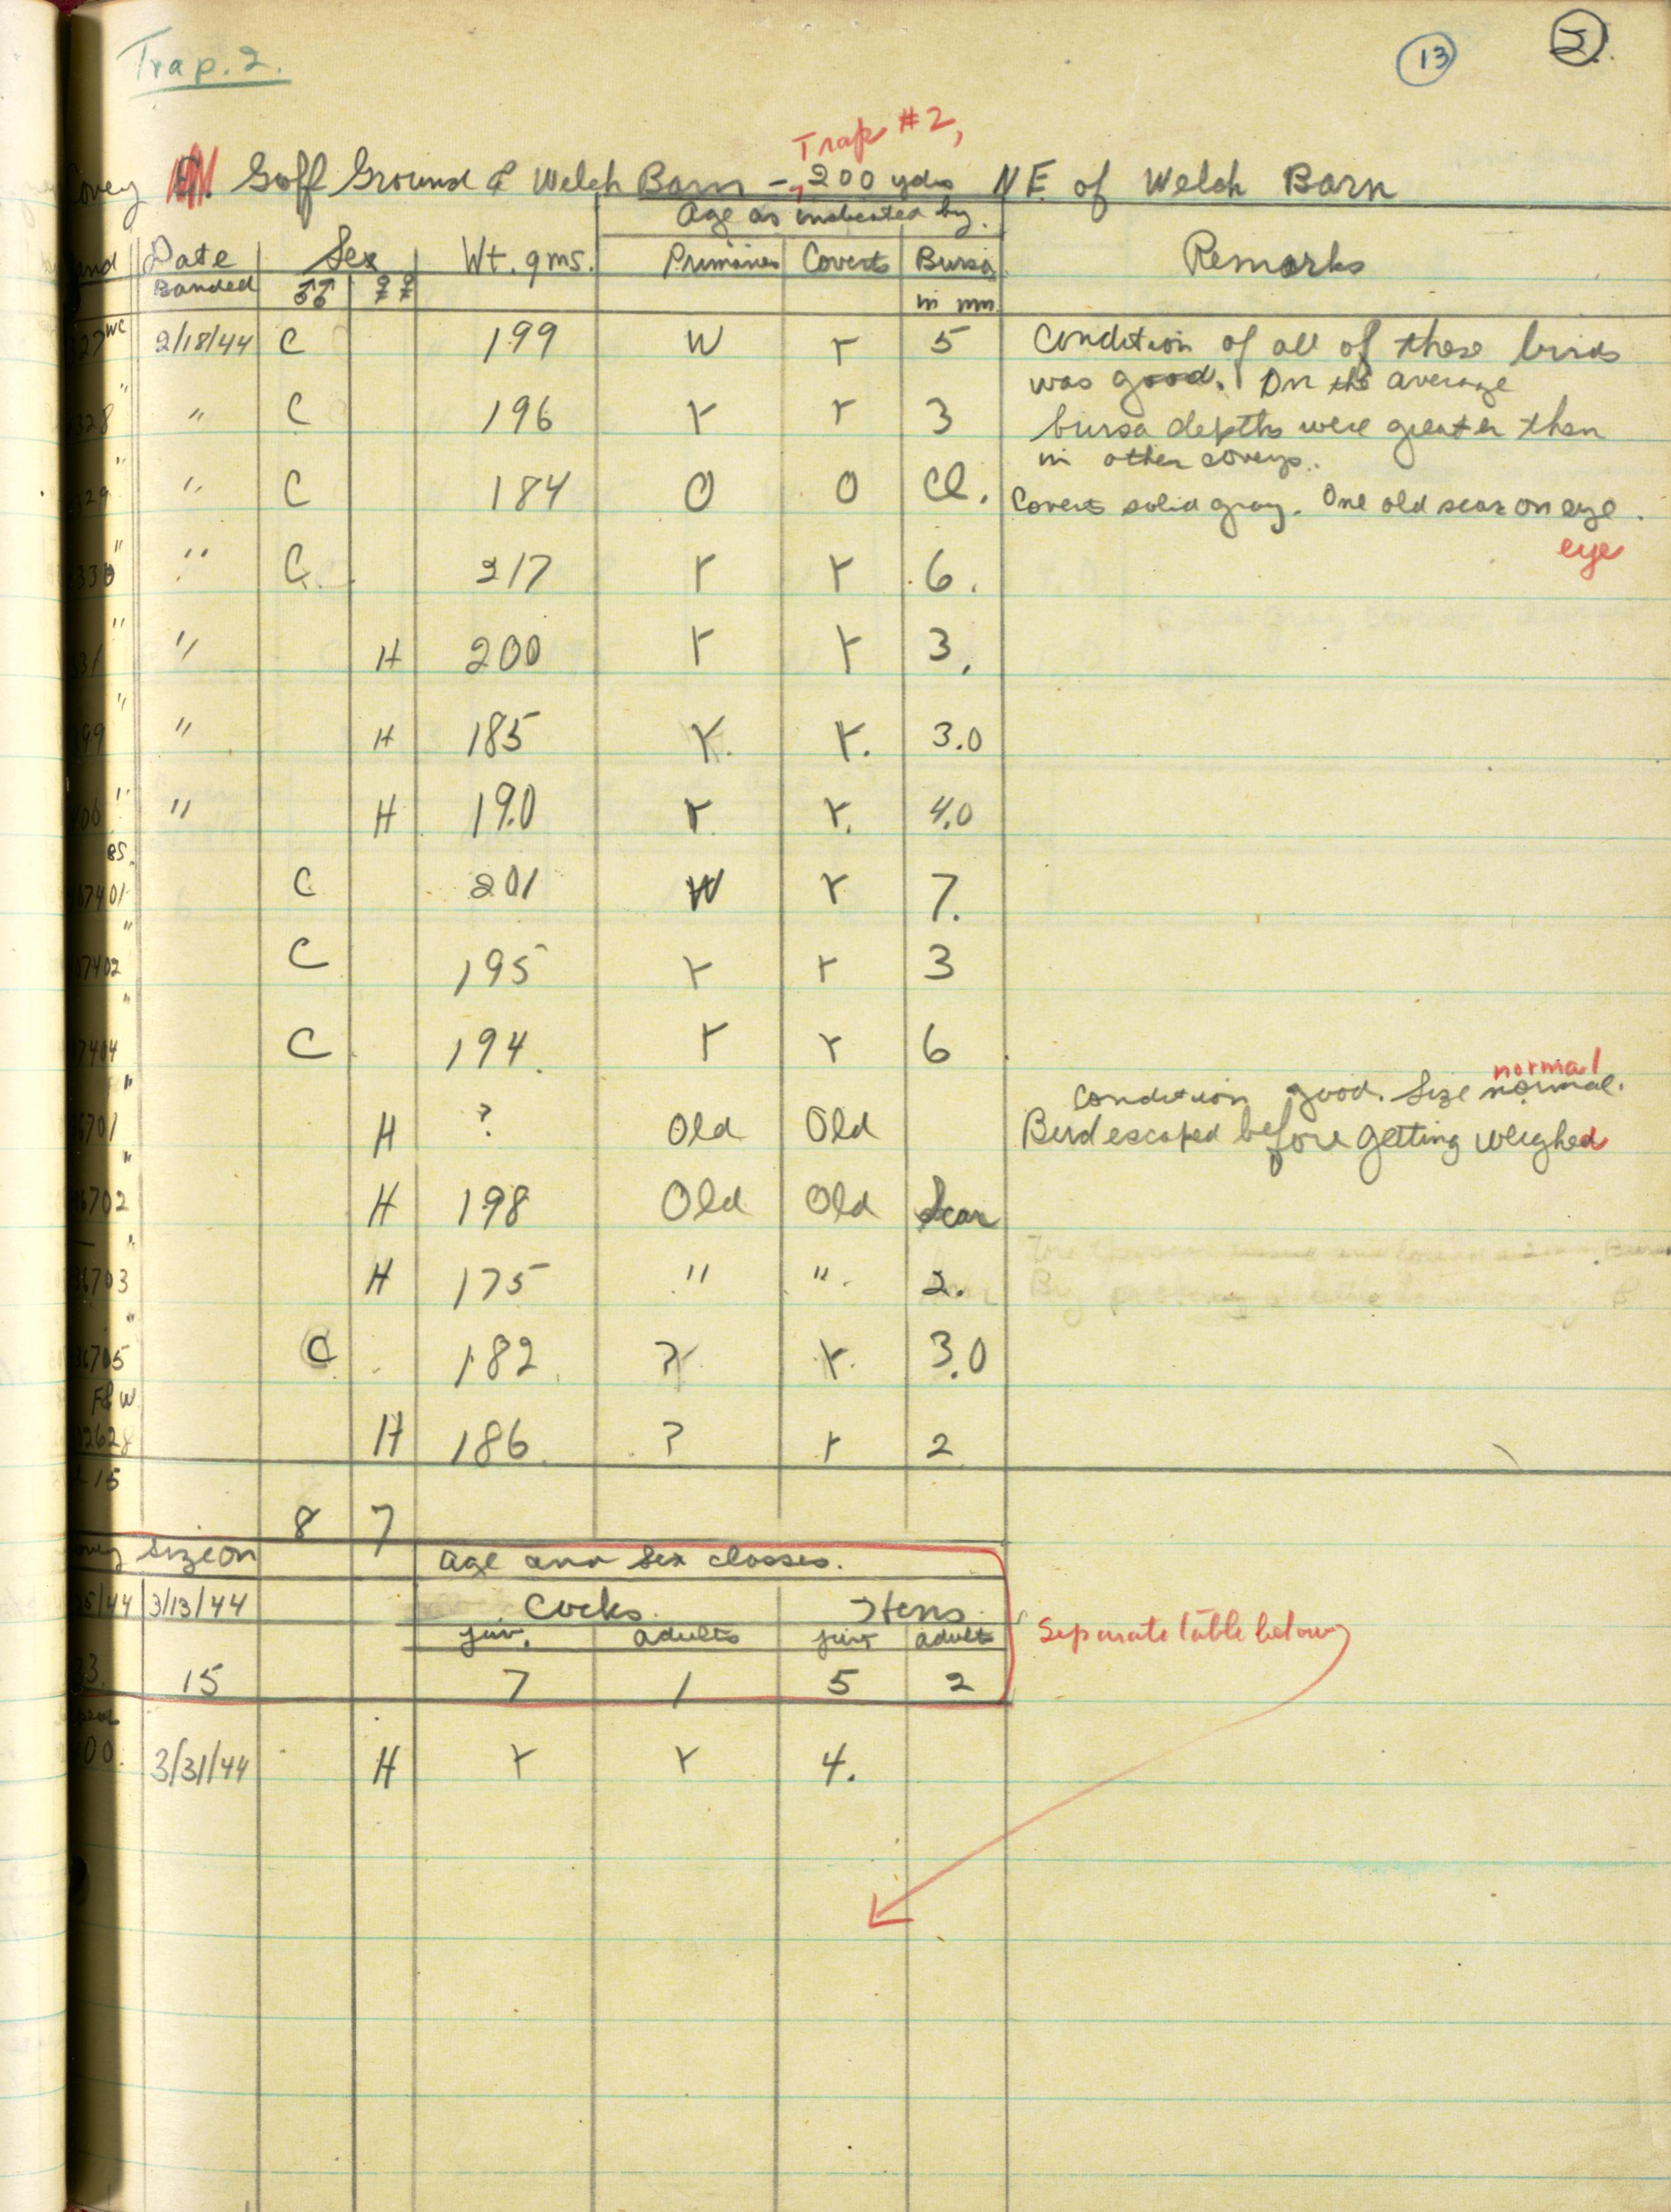 Trap. 2.
13 2.
Trap #2,
Covey Goff Ground & Welch Barn - 200 yds NE of Welch Barn
Age as indicated by
Band Date Sex Wt. gms. Primaries Coverts Bursa Remarks
Banded ♂♂ ♀♀ in mm
27 WC 2/18/44 C 199 W r 5 Condition of all of these birds
was good. On the average
328 " " C 196 r r 3 bursa depths were greater than
in other coveys.
329 " " C 184 O O Cl. Coverts solid gray. One old scar on eye.
eye
330 " " C 217 r r 6.
331 " " H 200 r r 3.
399 " " H 185 r. r. 3.0
400 " " H 190 r. r. 4.0
BS.
67401 C 201 W r 7.
"
67402 C 195 r r 3
"
7404 C 194. r r 6
normal
" Condition good. Size normal.
6701 H ? Old Old Bird escaped before getting weighed
"
6702 H 198 Old Old Scar
"
36703 H 175 " ". 2.
"
36705 C 182 ? r. 3.0
F&W
2628 H 186. ? r 2
15
8 7
Covey Size on Age and Sex classes.
25/44 3/13/44 Cocks. Hens.
juv. adults juv adults
Separate table below
23. 15 7 1 5 2
400. 3/31/44 H r r 4.